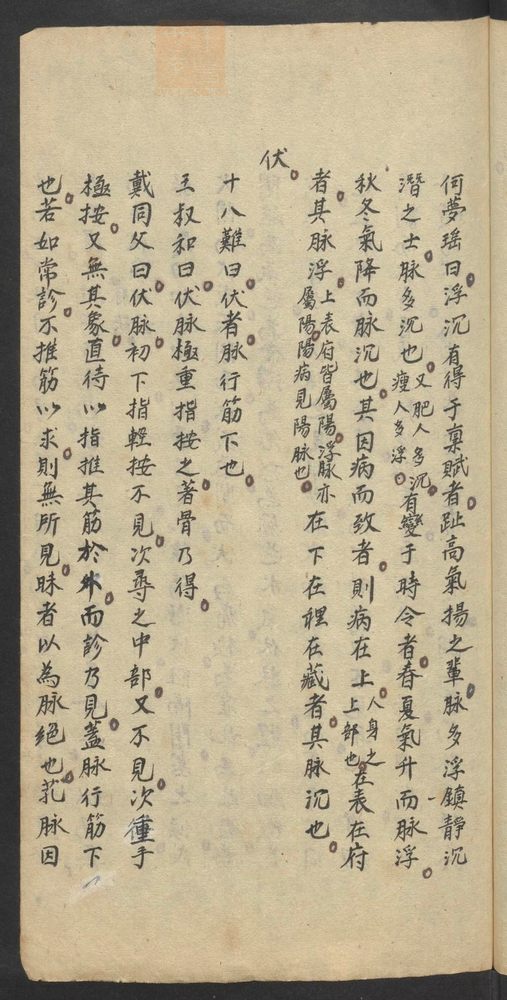 何夢瑶曰浮沉有得于禀賦者趾高氣揚之輩脉多浮鎮靜沉
潛之士脉多沉也又肥人多沉瘦人多浮有變于時令者春夏氣升而脉浮
秋冬氣降而脉沉也其因病而致者則病在上人身之上部也在表在府
者其脉浮上表府皆屬陽浮脉亦屬陽陽病見陽脉也在下在裡在藏者其脉沉也
伏
十八難曰伏者脉行筋下也
王叔和曰伏脉極重指按之著骨乃得
戴同父曰伏脉初下指輕按不見次尋之中部又不見次重手
極按又無其象直待以指推其筋於外而診乃見蓋脉行筋下
也若如常診不推筋以求則無所見昧者以為脉絕也芤脉因